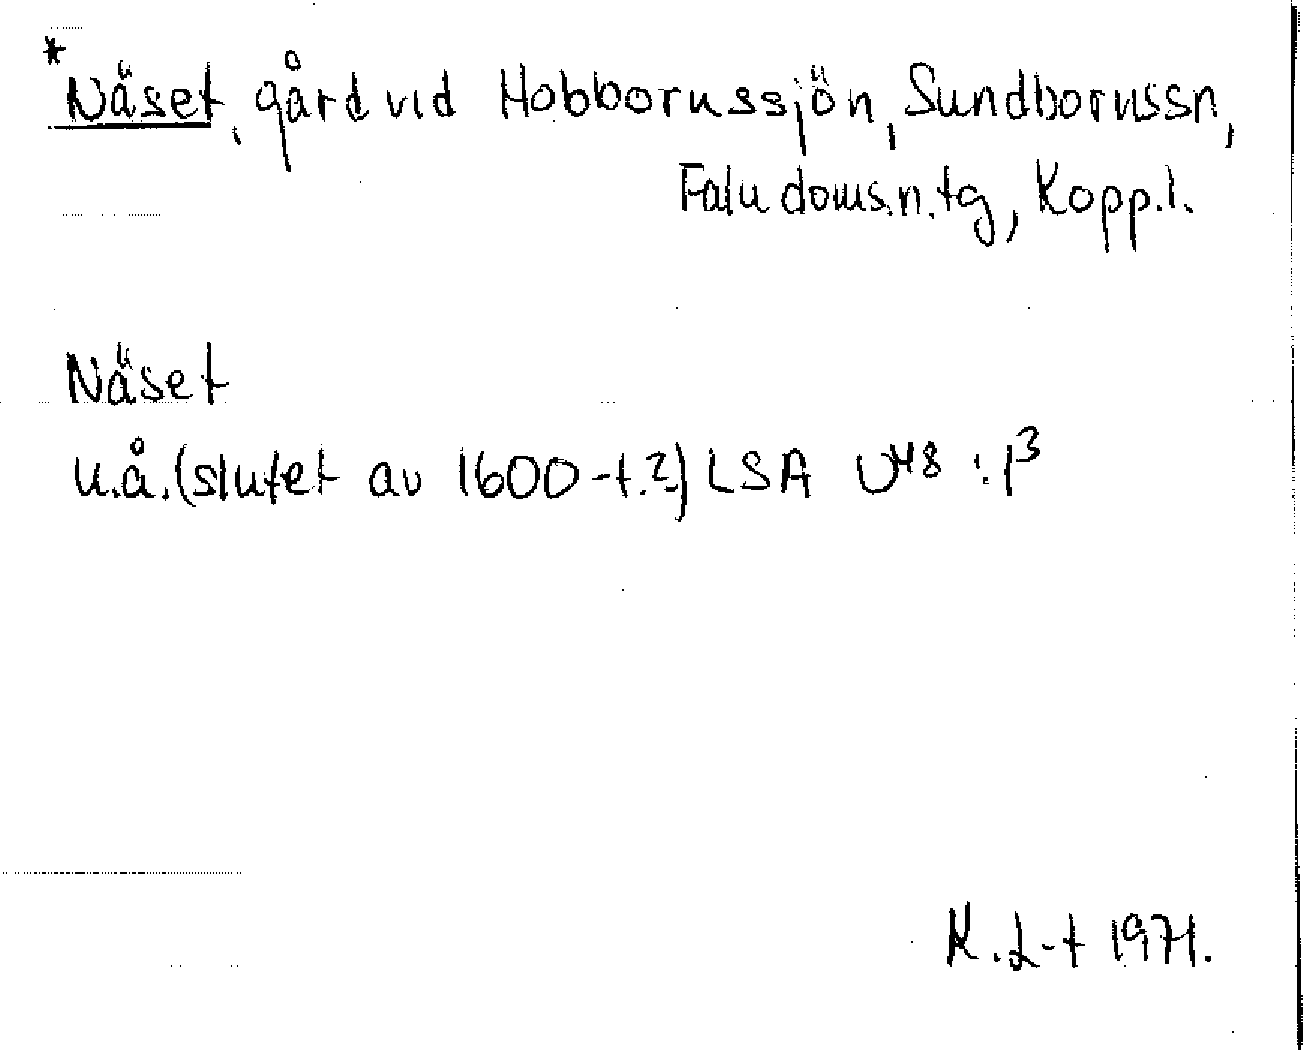 *Näset, gård vid Hobbornssjön, Sundbornssn,
Falu doms.n.tg, Kopp.l.
Näset
u.å.(slutet av 1600-t.?) LSA U48 : 1³
K.L-t 1971.